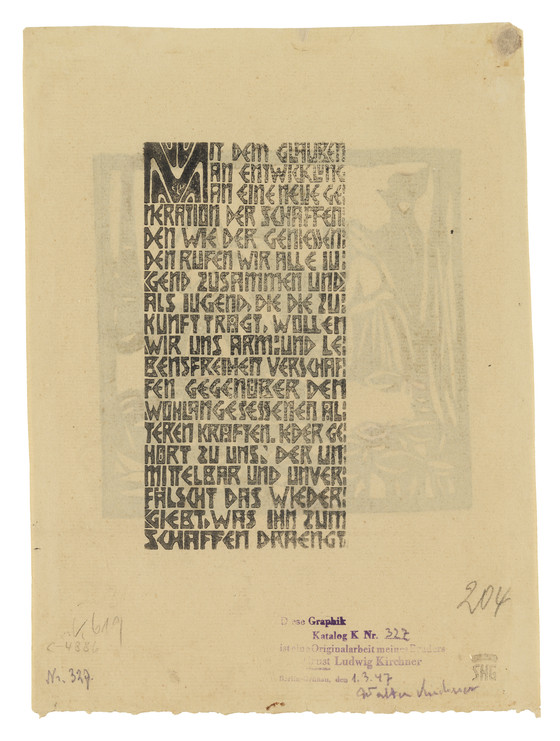 MIT DEM GLAUBEN
AN ENTWICKLUNG
AN EINE NEUE GE:
NERATION DER SCHAFFEN:
DEN WIE DER GENIESSEN:
DEN RUFEN WIR ALLE JU:
GEND ZUSAMMEN UND
ALS JUGEND, DIE DIE ZU:
KUNFT TRÄGT, WOLLEN
WIR UNS ARM: UND LE:
BENSFREIHEIT VERSCHAF:
FEN GEGENÜBER DEN
WOHLANGESESSENEN ÄL:
TEREN KRÄFTEN. JEDER GE:
HÖRT ZU UNS, DER UN:
MITTELBAR UND UNVER:
FÄLSCHT DAS WIEDER:
GIEBT, WAS IHN ZUM
SCHAFFEN DRAENGT.
204
619
C-4886
Nr. 327.
Diese Graphik
Katalog K Nr. 327
ist eine Originalarbeit meines Bruders
Ernst Ludwig Kirchner
den 1.3.47
Walter Kirchner
SHG